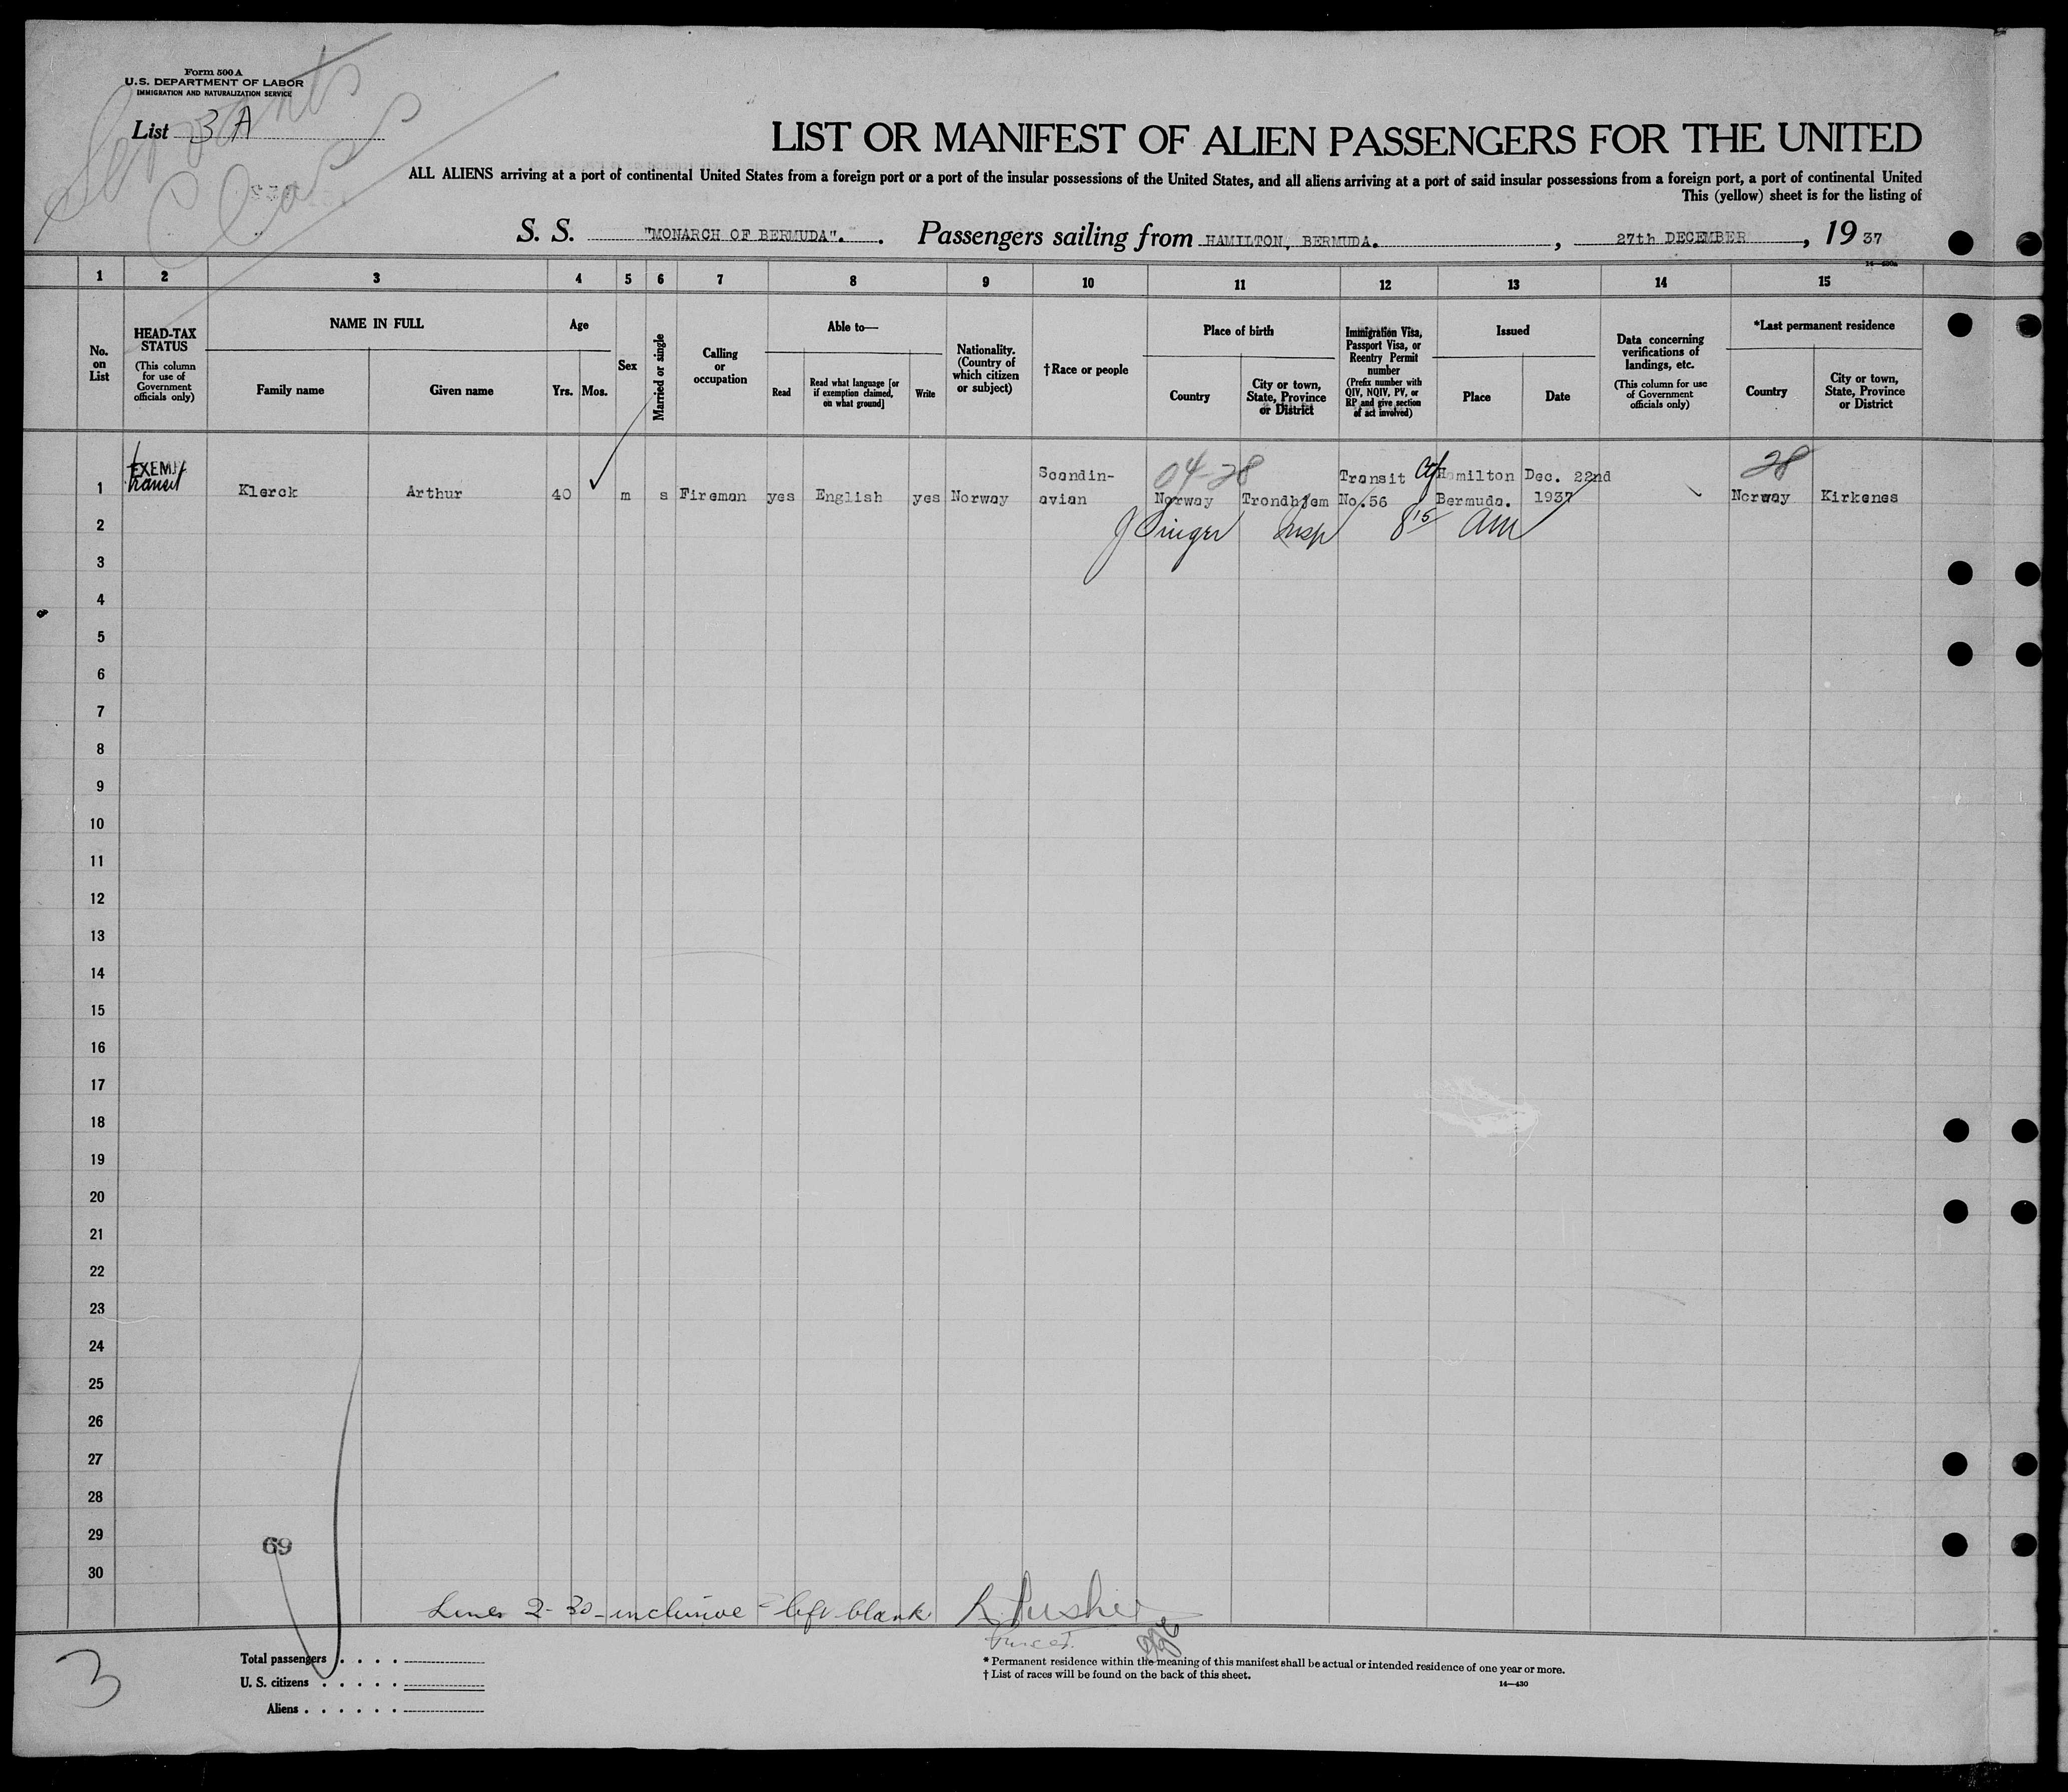 Form 500 A
U.S. DEPARTMENT OF LABOR
IMMIGRATION AND NATURALIZATION SERVICE
Servants
Class
List 3 A
LIST OR MANIFEST OF ALIEN PASSENGERS FOR THE UNITED
ALL ALIENS arriving at a port of continental United States from a foreign port or a port of the insular possessions of the United States, and all aliens arriving at a port of said insular possessions from a foreign port, a port of continental United
This (yellow) sheet is for the listing of
S. S. "MONARCH OF BERMUDA". Passengers sailing from HAMILTON, BERMUDA. , 27th DECEMBER , 19 37
1 2 3 4 5 6 7 8 9 10 11 12 13 14 15
No. on List
HEAD-TAX STATUS
(This column for use of Government officials only)
NAME IN FULL
Family name
Given name
Age
Yrs.
Mos.
Sex
Married or single
Calling or occupation
Able to—
Read
Read what language [or if exemption claimed, on what ground]
Write
Nationality. (Country of which citizen or subject)
†Race or people
Place of birth
Country
City or town, State, Province or District
Immigration Visa, Passport Visa, or Reentry Permit number
(Prefix number with QIV, NQIV, PV, or RP and give section of act involved)
Issued
Place
Date
Data concerning verifications of landings, etc.
(This column for use of Government officials only)
*Last permanent residence
Country
City or town, State, Province or District
EXEMPT
transit
04-28
28
Scandin-
Transit Hamilton Dec. 22nd
1 Klerck Arthur 40 m s Fireman yes English yes Norway avian Norway Trondhjem No.56 Bermuda. 1937 Norway Kirkenes
2
J Singer Insp 8 15 AM
3
4
5
6
7
8
9
10
11
12
13
14
15
16
17
18
19
20
21
22
23
24
25
26
27
28
29
69
30
Lines 2-30 inclusive - left blank
Purser.
3
Total passengers
U. S. citizens
Aliens
* Permanent residence within the meaning of this manifest shall be actual or intended residence of one year or more.
† List of races will be found on the back of this sheet.
14—430